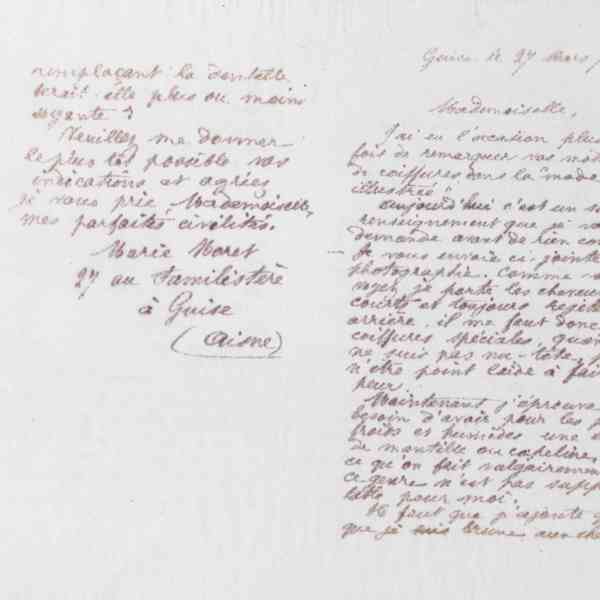 remplaçant la dentelle
serait elle plus ou moins
élégante ?
Veuillez me donner
le plus tôt possible vos
indications et agréez
je vous prie, Mademoiselle,
mes parfaites civilités.
Marie Moret
27 au Familistère
à Guise
(Aisne)
Guise le 27 Mars
Mademoiselle,
J'ai eu l'occasion plus
fois de remarquer vos
de coiffures dans la "mode
illustrée"
Aujourd'hui c'est un
renseignement que je
demande avant de rien
Je vous envoie ci jointe
photographie. Comme
je porte les cheveux
courts et toujours rejetés
arrière, il me faut donc
coiffures spéciales, quand
ne suis pas nu-tête,
n'être point laide à faire
peur.
Maintenant j'éprouve
besoin d'avoir pour les
froids et humides une
de mantille ou capeline,
ce qu'on fait vulgairement
ce genre n'est pas
table pour moi.
Il faut que j'ajoute
que je suis brune aux